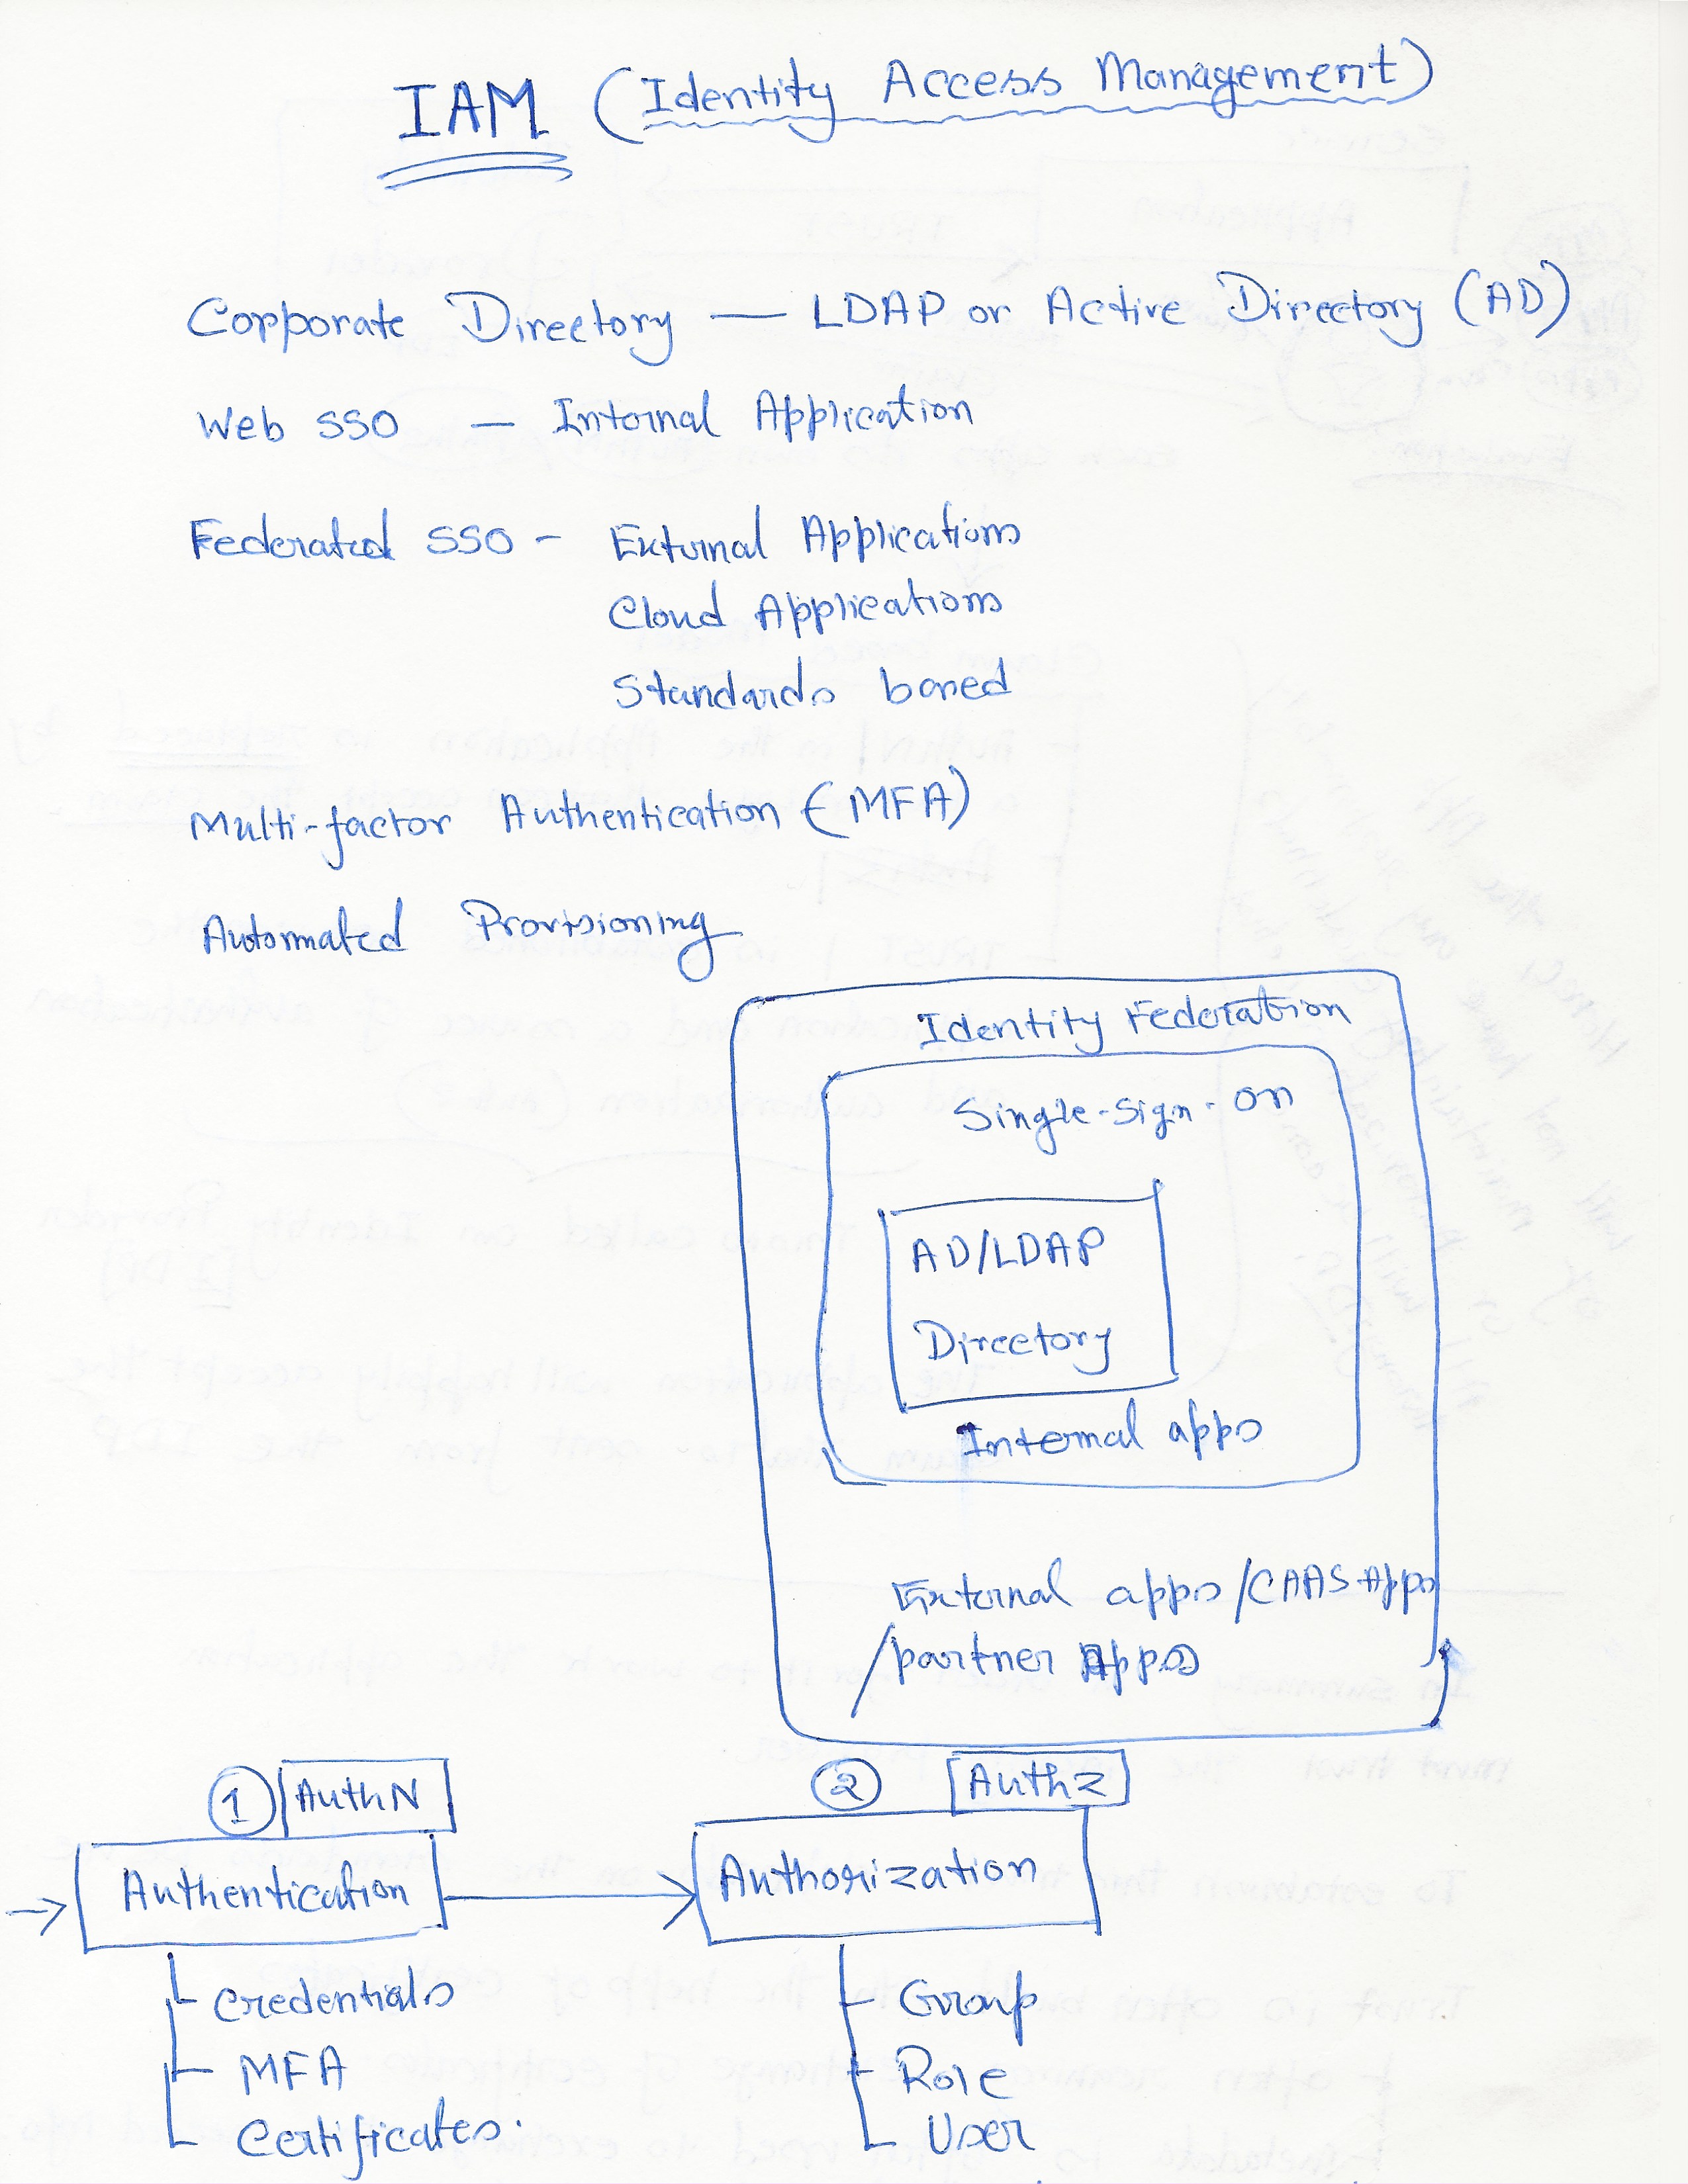 IAM (Identity Access Management)
Corporate Directory — LDAP or Active Directory (AD)
Web SSO — Internal Application
Federated SSO - External Applications
Cloud Applications
Standards based
Multi-factor Authentication (MFA)
Automated Provisioning
Identity Federation
Single-Sign-on
AD/LDAP
Directory
Internal apps
External apps /CAAS Apps
/partner Apps
1 AuthN
Authentication
Credentials
MFA
Certificates.
2 AuthZ
Authorization
Group
Role
User